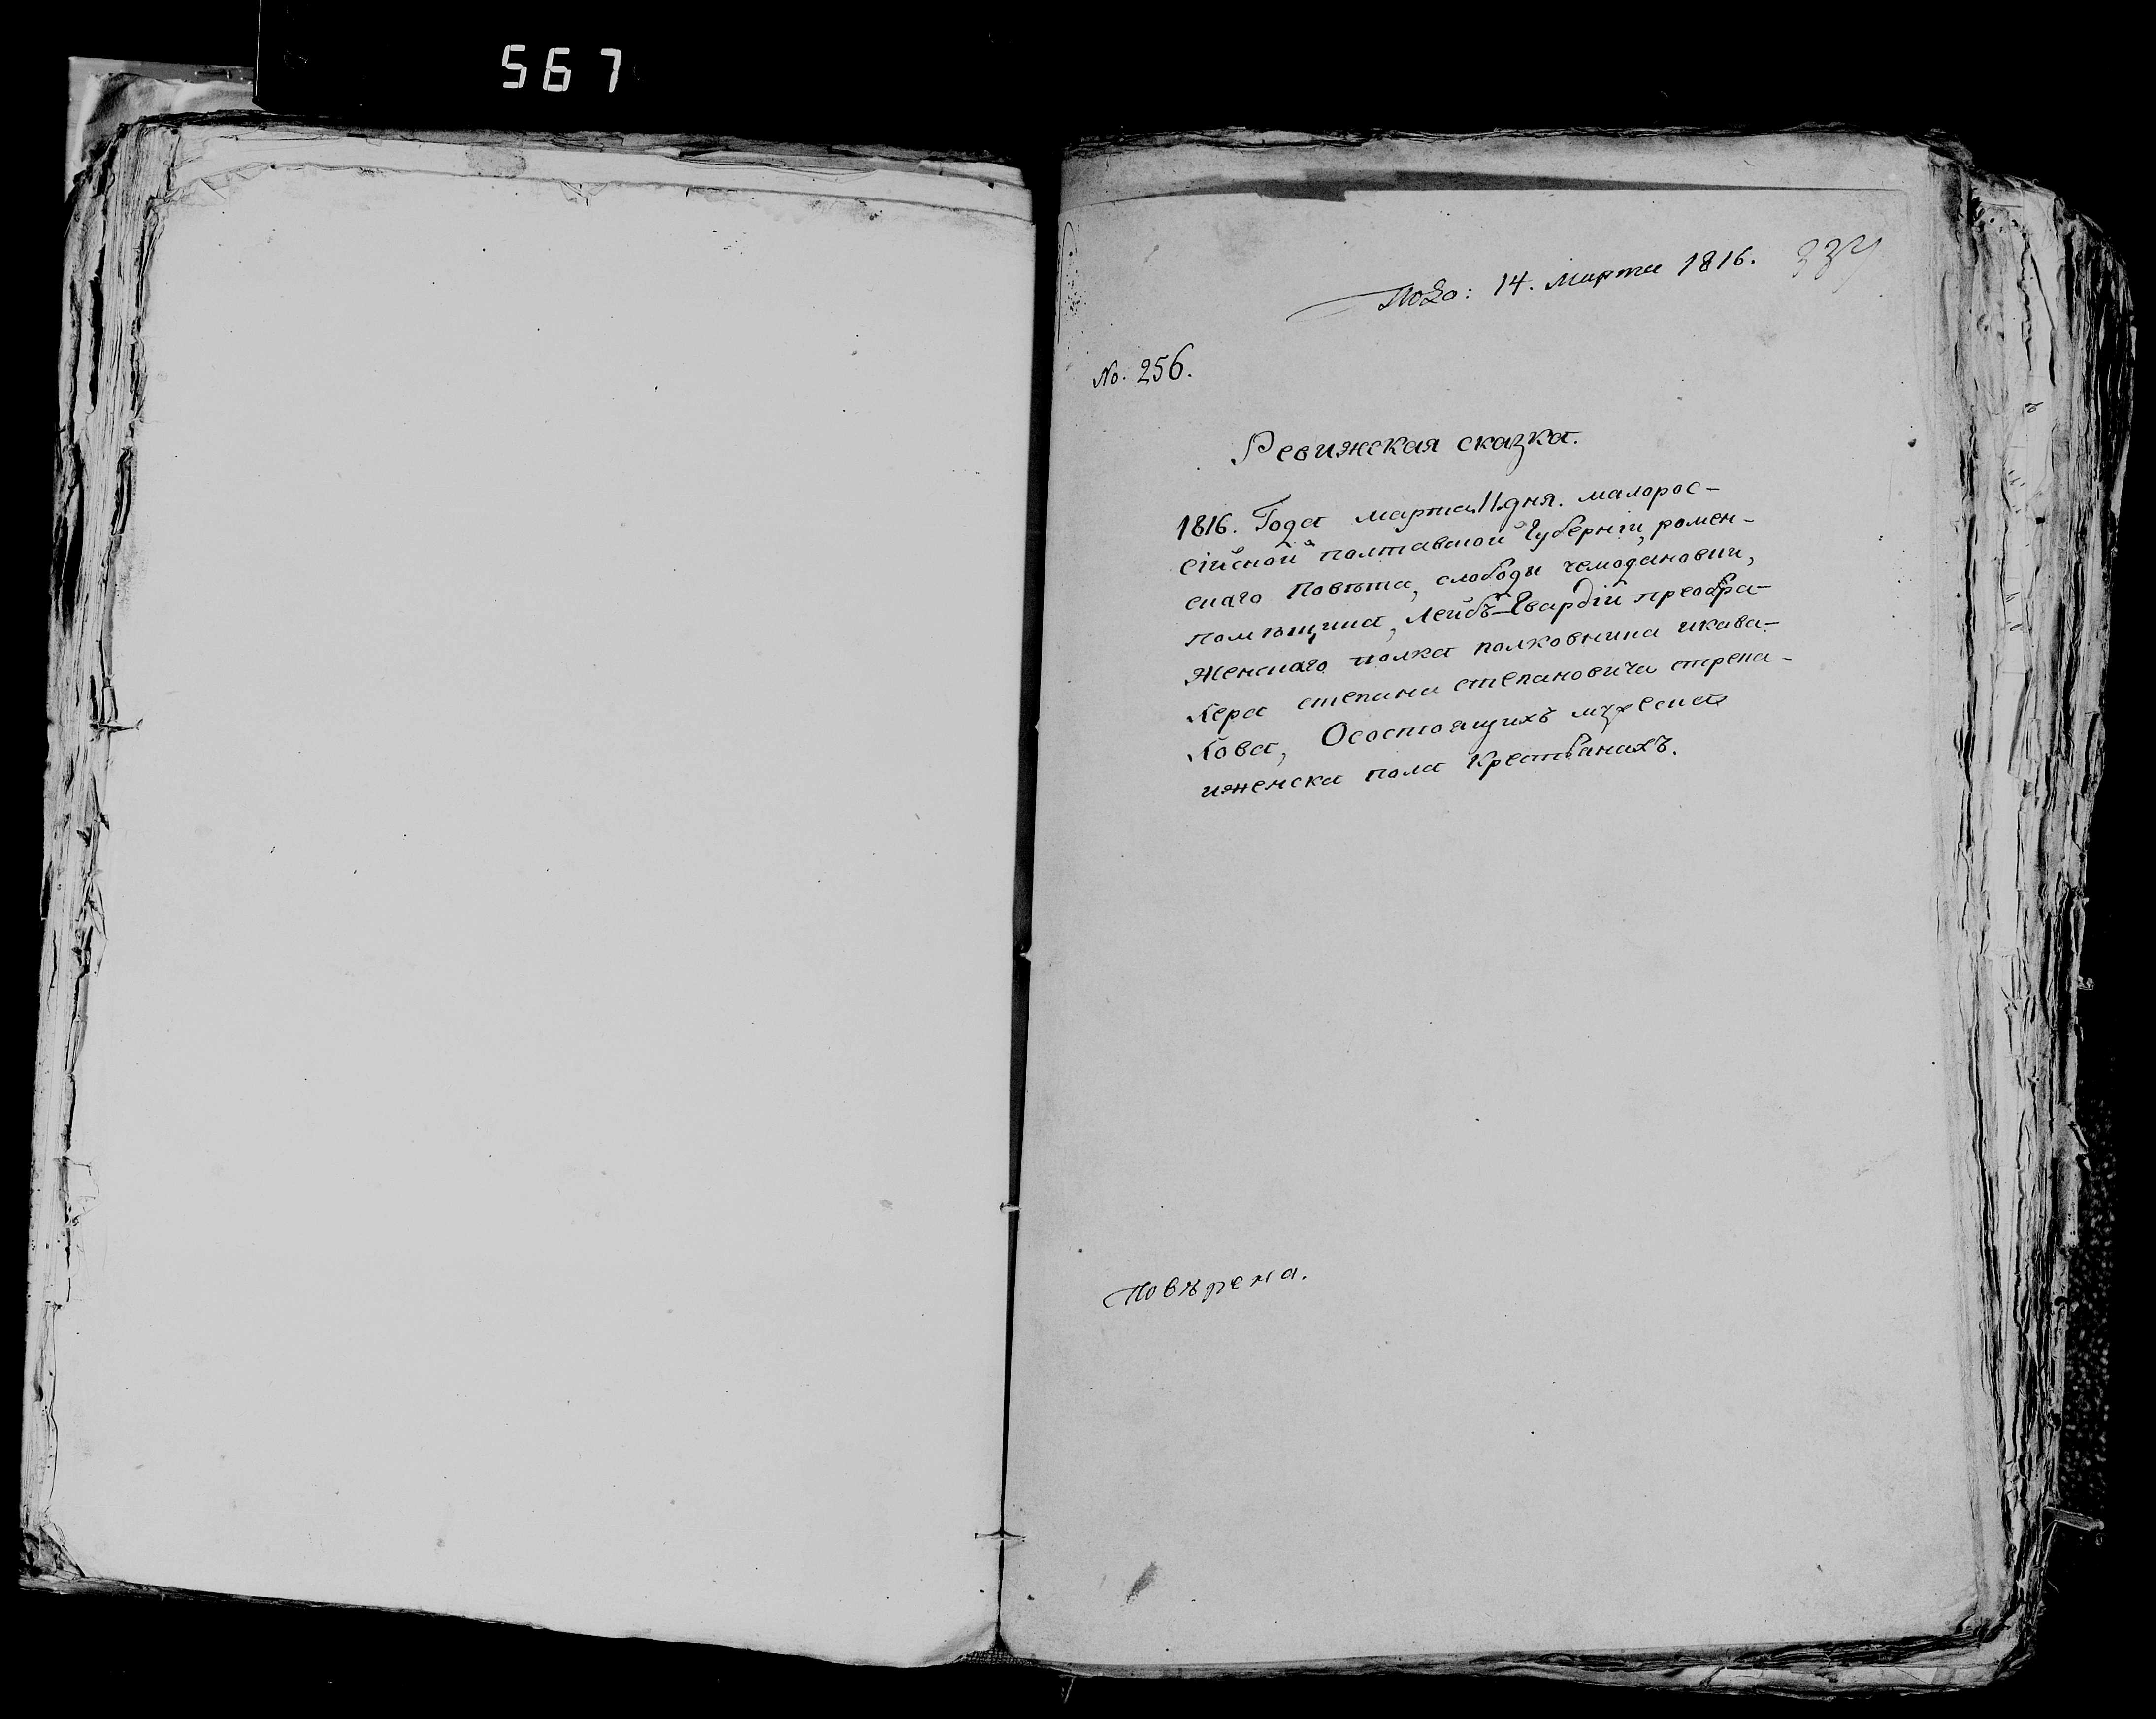 567
Подо: 14. Марта 1816.
No. 256.
Ревижская сказка.
1816. Года марта 11 дня. малорос-
сійской полтавской Губерніи, ромен-
скаго Повѣта, слободы чемодановки,
помѣщика, Лейбъ-Гвардіи преобра-
Женскаго полка полковника икава-
лера степана степановича стрека-
лова, Осостоящихъ мужеска
иженска пола Крестьянахъ.
Повѣрена.